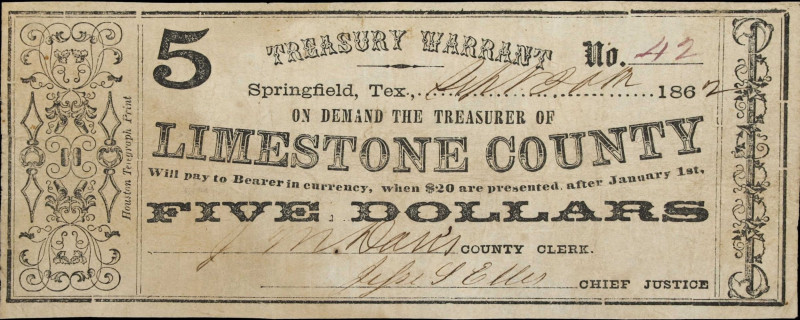 5
TREASURY WARRANT
No. 42
Springfield, Tex., Sept 20th 1862
ON DEMAND THE TREASURER OF
LIMESTONE COUNTY
Will pay to Bearer in currency, when $20 are presented, after January 1st,
FIVE DOLLARS
J M. Davis COUNTY CLERK.
CHIEF JUSTICE
Houston Telegraph Print